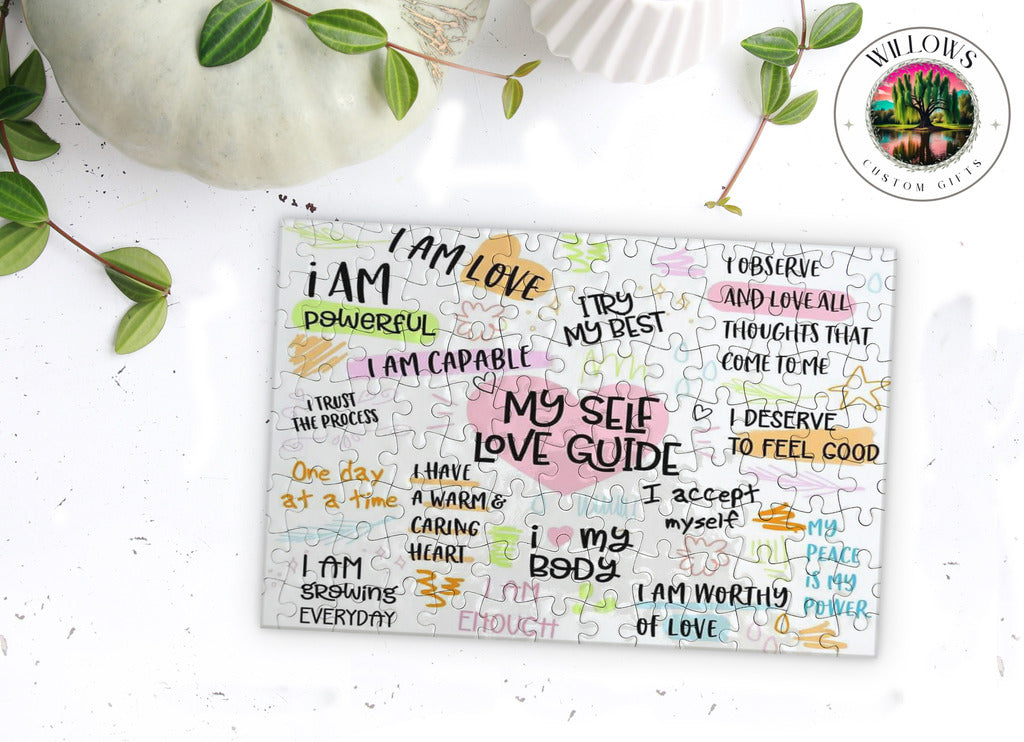 WILLOWS
CUSTOM GIFTS
I AM LOVE
i AM
POWERFUL
I AM CAPABLE
I TRY
MY BEST
I OBSERVE
AND LOVE ALL
THOUGHTS THAT
COME TO ME
I TRUST
THE PROCESS
MY SELF
LOVE GUIDE
I DESERVE
TO FEEL GOOD
One day
at a time
I HAVE
A WARM &
CARING
HEART
I accept
myself
i my
BODY
MY
PEACE
IS MY
POWER
I AM
growing
EVERYDAY
I AM
ENOUGH
I AM WORTHY
OF LOVE